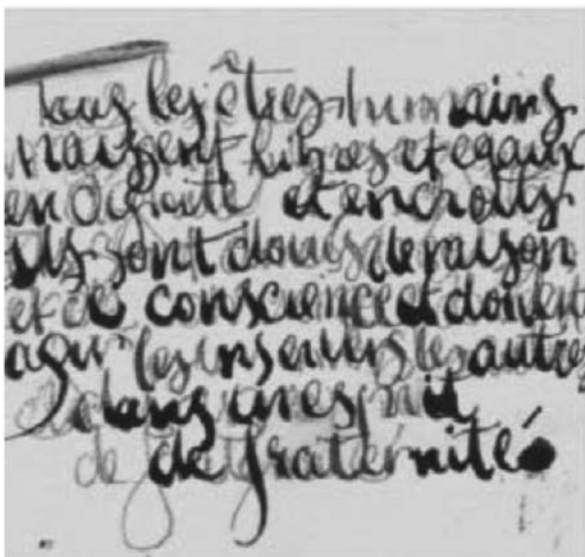 Tous les êtres humains
naissent libres et egaux
en dignité et en droits
ils sont doués de raison
et de conscience et doivent
agir les uns envers les autres
dans un esprit
de de fraternité